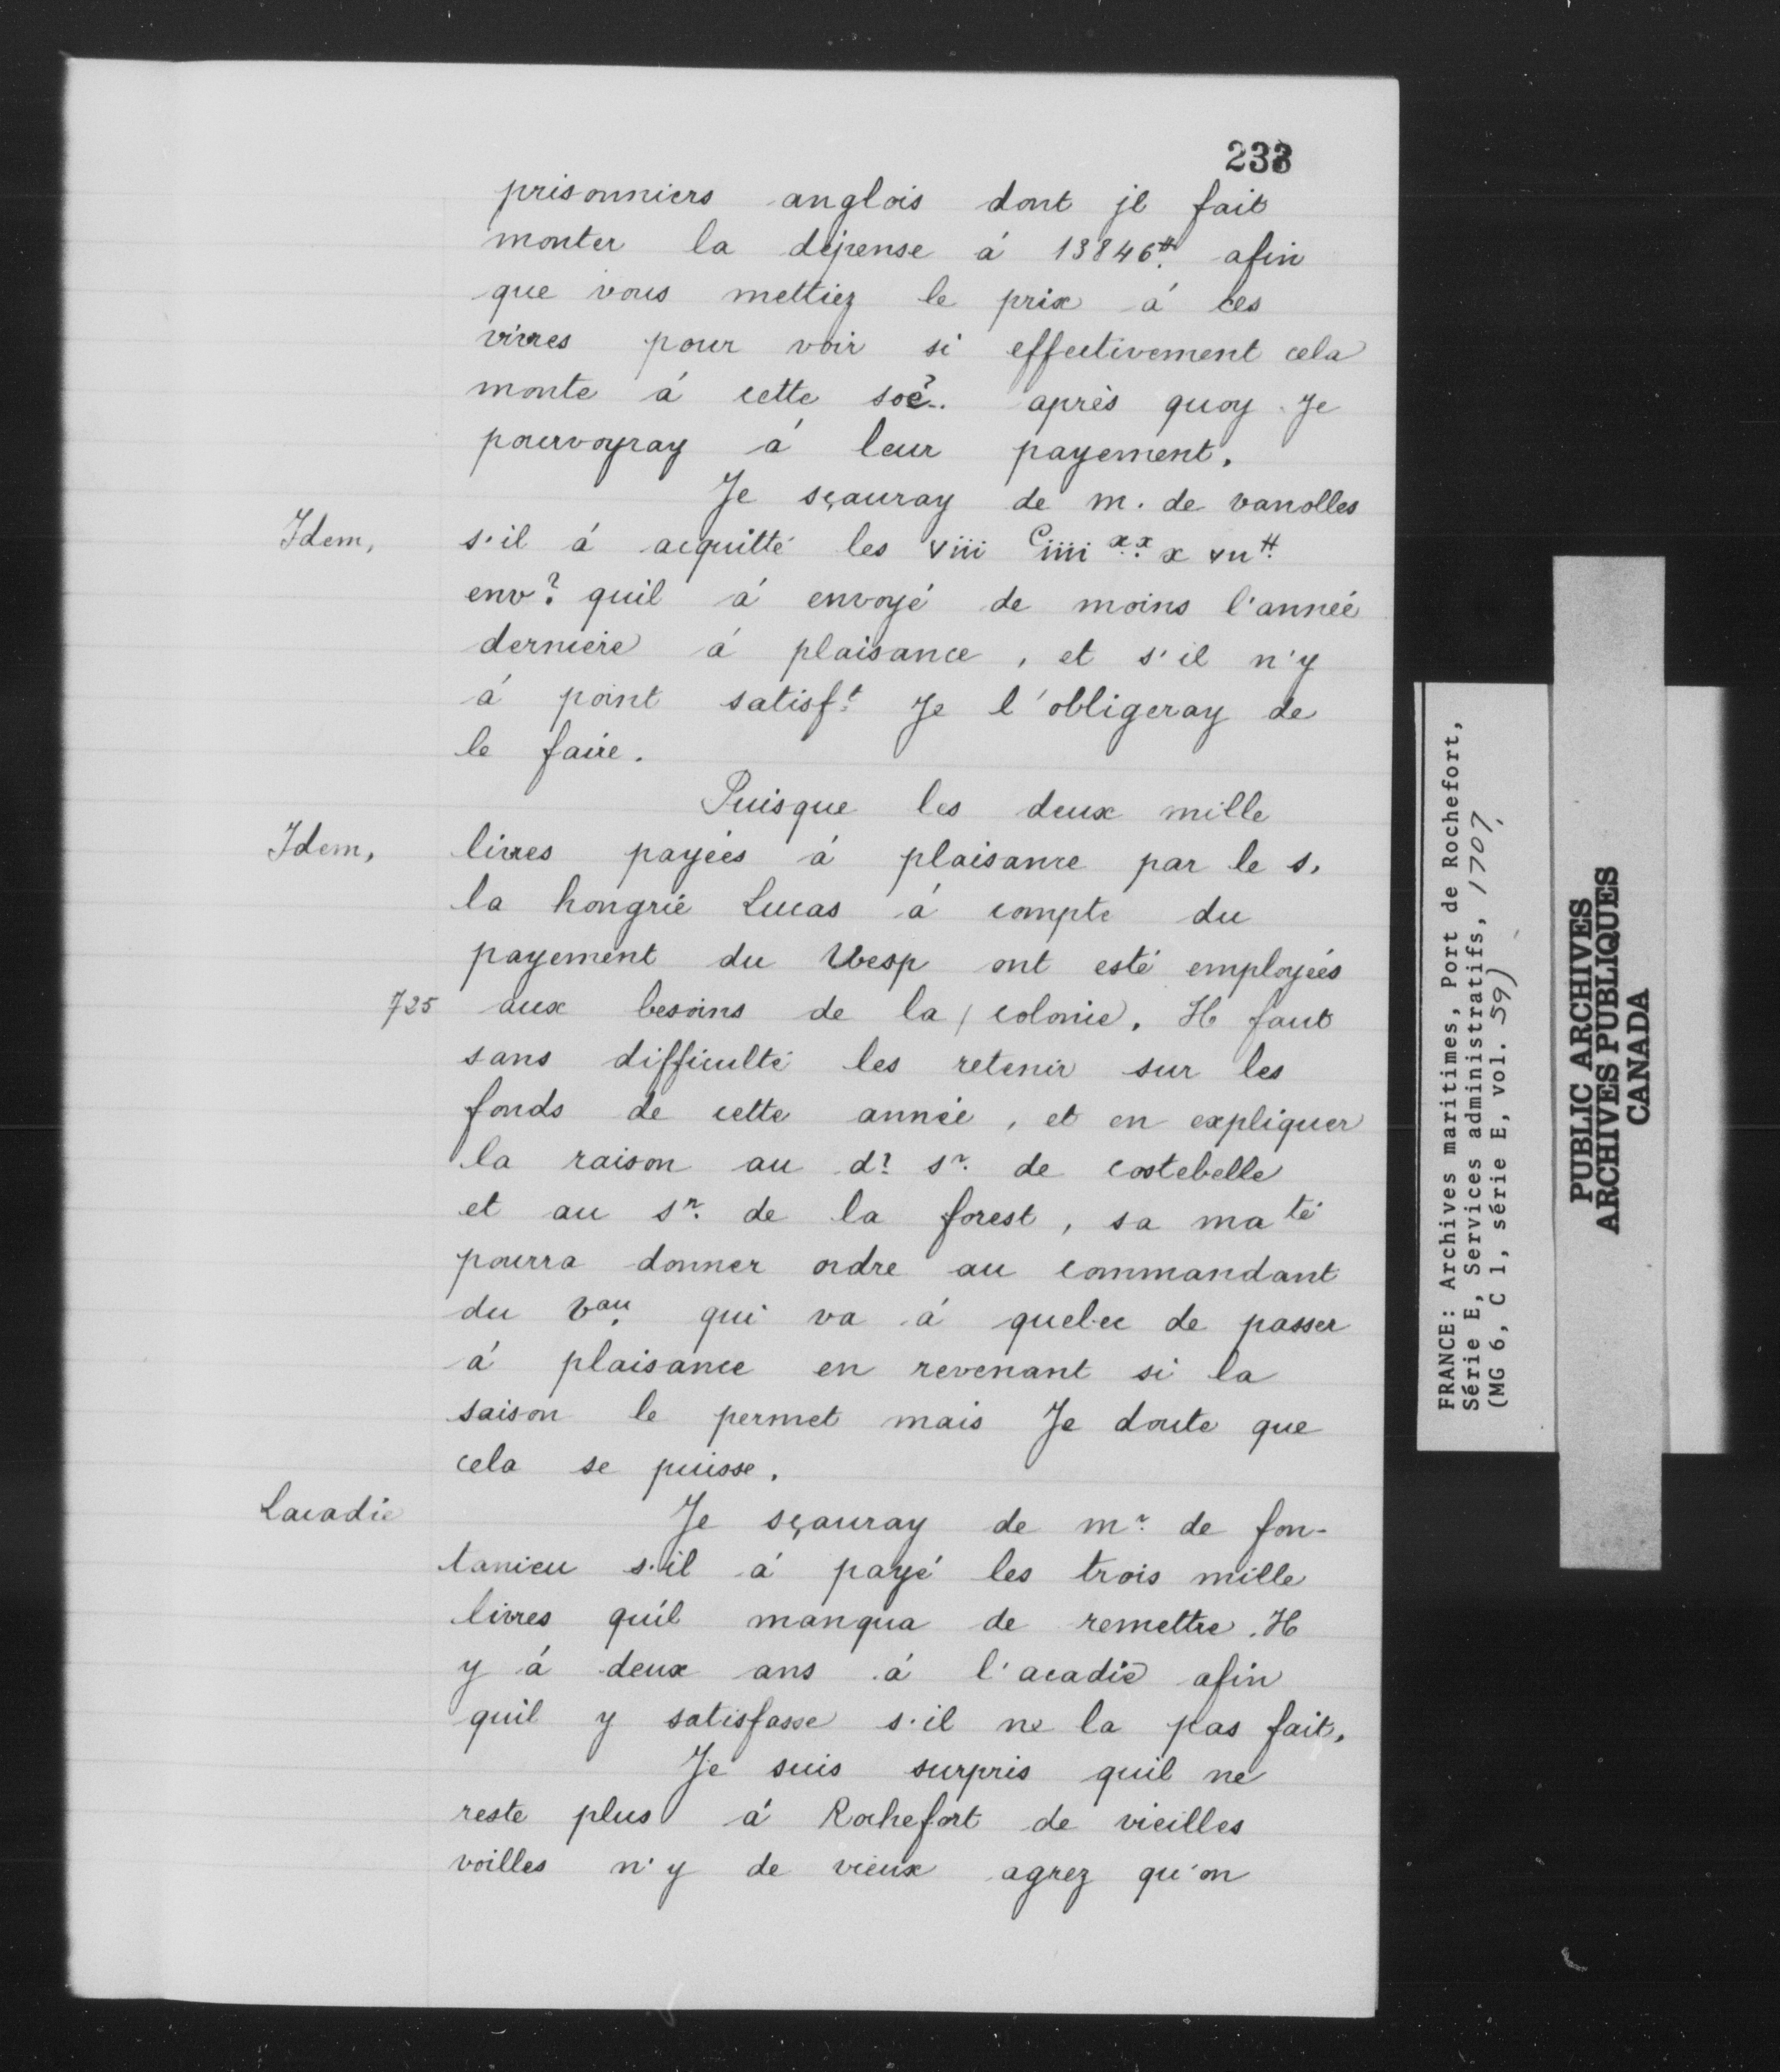 233
prisonniers anglois dont jl fait
monter la dépense á 13846₶ afin
que vous mettiez le prix á ces
vivres pour voir si effectivement cela
monte á cette soẽ. après quoy Je
pourvoyray á leur payement.
Je sçauray de m. de vanolles
Idem, s'il á acquitté les viii ᶜiiii ˣˣ x vii₶
env? quil á envoyé de moins l'année
derniere á plaisance, et s'il n'y
á point satisfᵗ Je l'obligeray de
le faire.
Puisque les deux mille
Idem, livres payées á plaisance par le s.
la hongrie Lucas á compte du
payement du Wesp ont esté employées
725 aux besoins de la / colonie. Il faut
sans difficulté les retenir sur les
fonds de cette année, et en expliquer
la raison au d? sʳ. de costebelle
et au sʳ. de la forest, sa maᵗᵉ́
pourra donner ordre au commandant
du vᵃᵘ. qui va á quebec de passer
á plaisance en revenant si la
saison le permet mais Je doute que
cela se puisse.
Lacadie Je sçauray de mʳ. de fon-
tanieu s'il á payé les trois mille
livres qu'il manqua de remettre. Il
y á deux ans á l'acadie afin
quil y satisfasse s'il ne la pas fait.
Je suis surpris quil ne
reste plus á Rochefort de vieilles
voilles n'y de vieux agrez qu'on
FRANCE: Archives maritimes, Port de Rochefort,
Série E, Services administratifs, 1707,
(MG 6, C 1, série E, vol. 59)
PUBLIC ARCHIVES
ARCHIVES PUBLIQUES
CANADA